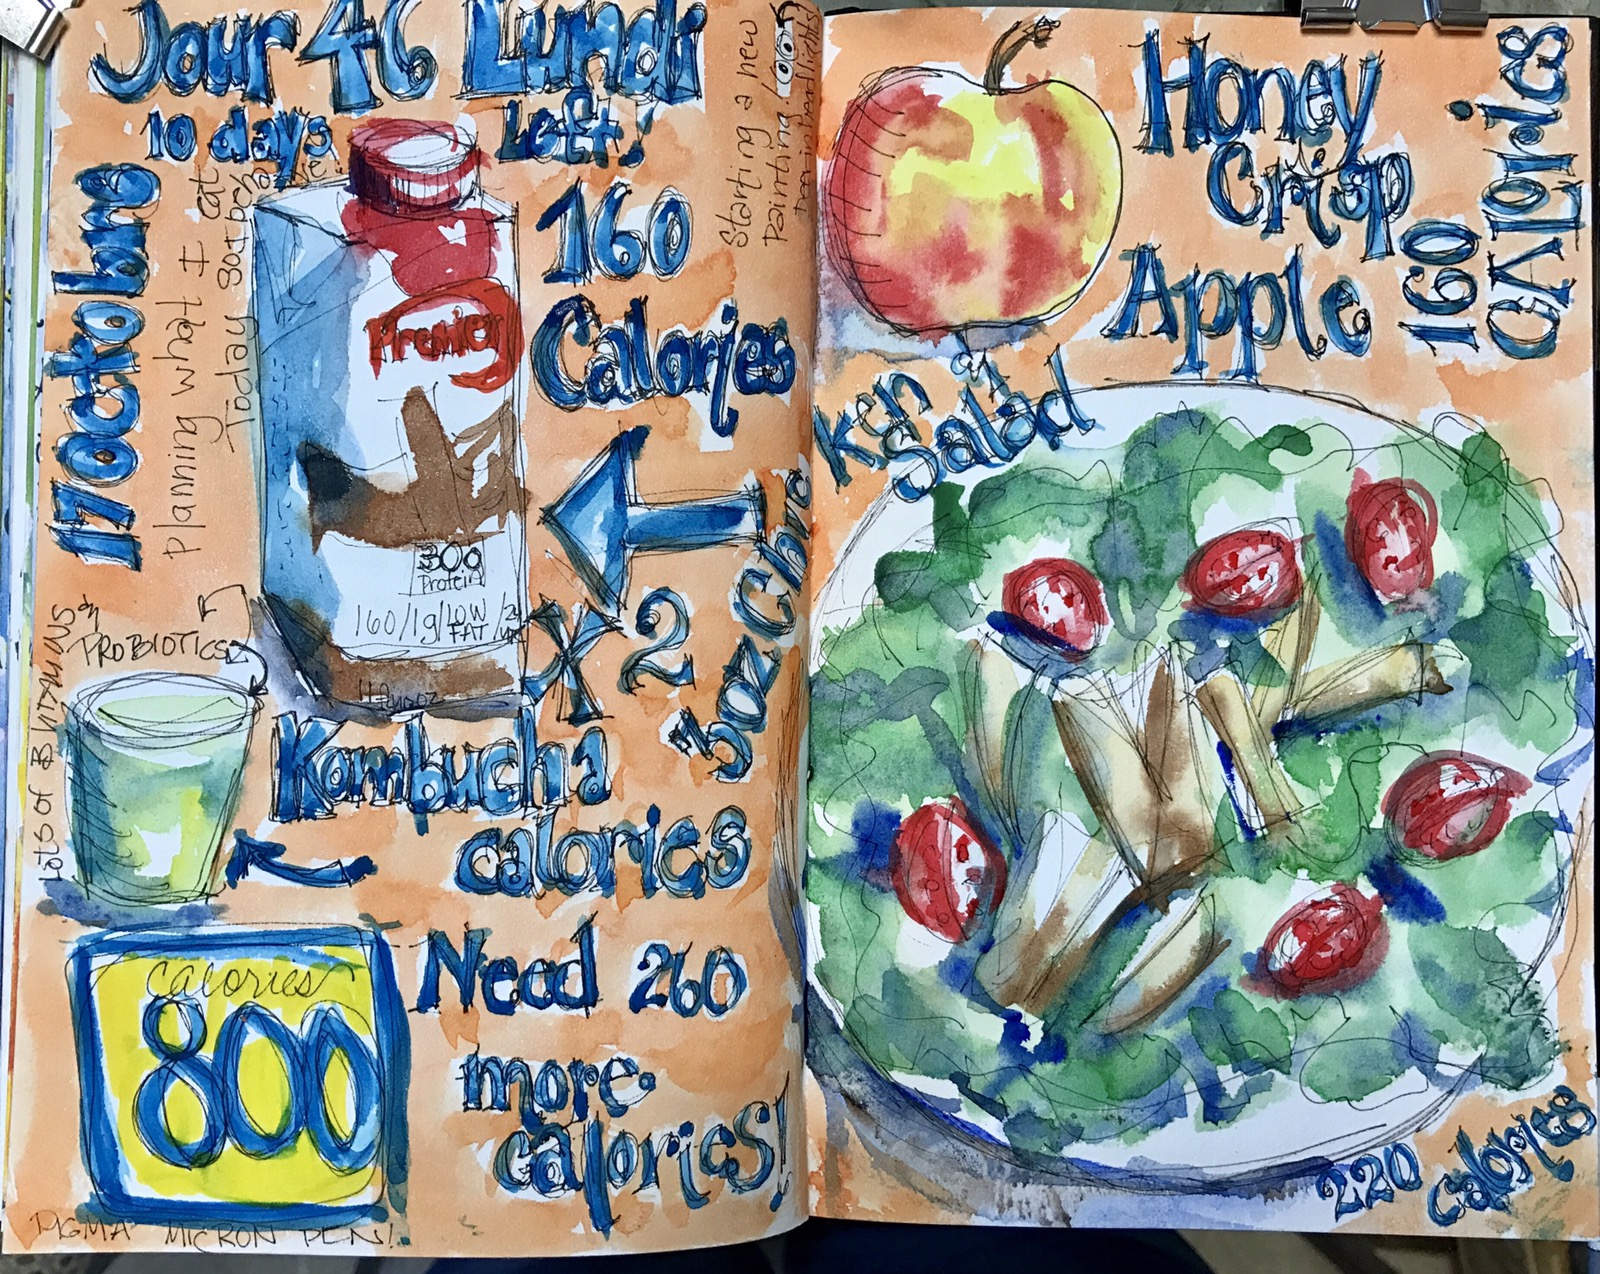 Jour 46 Lundi
10 days Left!
17 octobre
Planning what I eat
Today
Starting a new
painting!
160
Calories
Premier
30g
Protein
160/1g/LOW
FAT
X 2
Lots of B VITAMINS
PROBIOTICS
Kombucha
calories
Calories
800
Need 260
more
calories!
PIGMA MICRON PEN!
Honey
Crisp
Apple
160
CALORIES
Salad
220 Calories